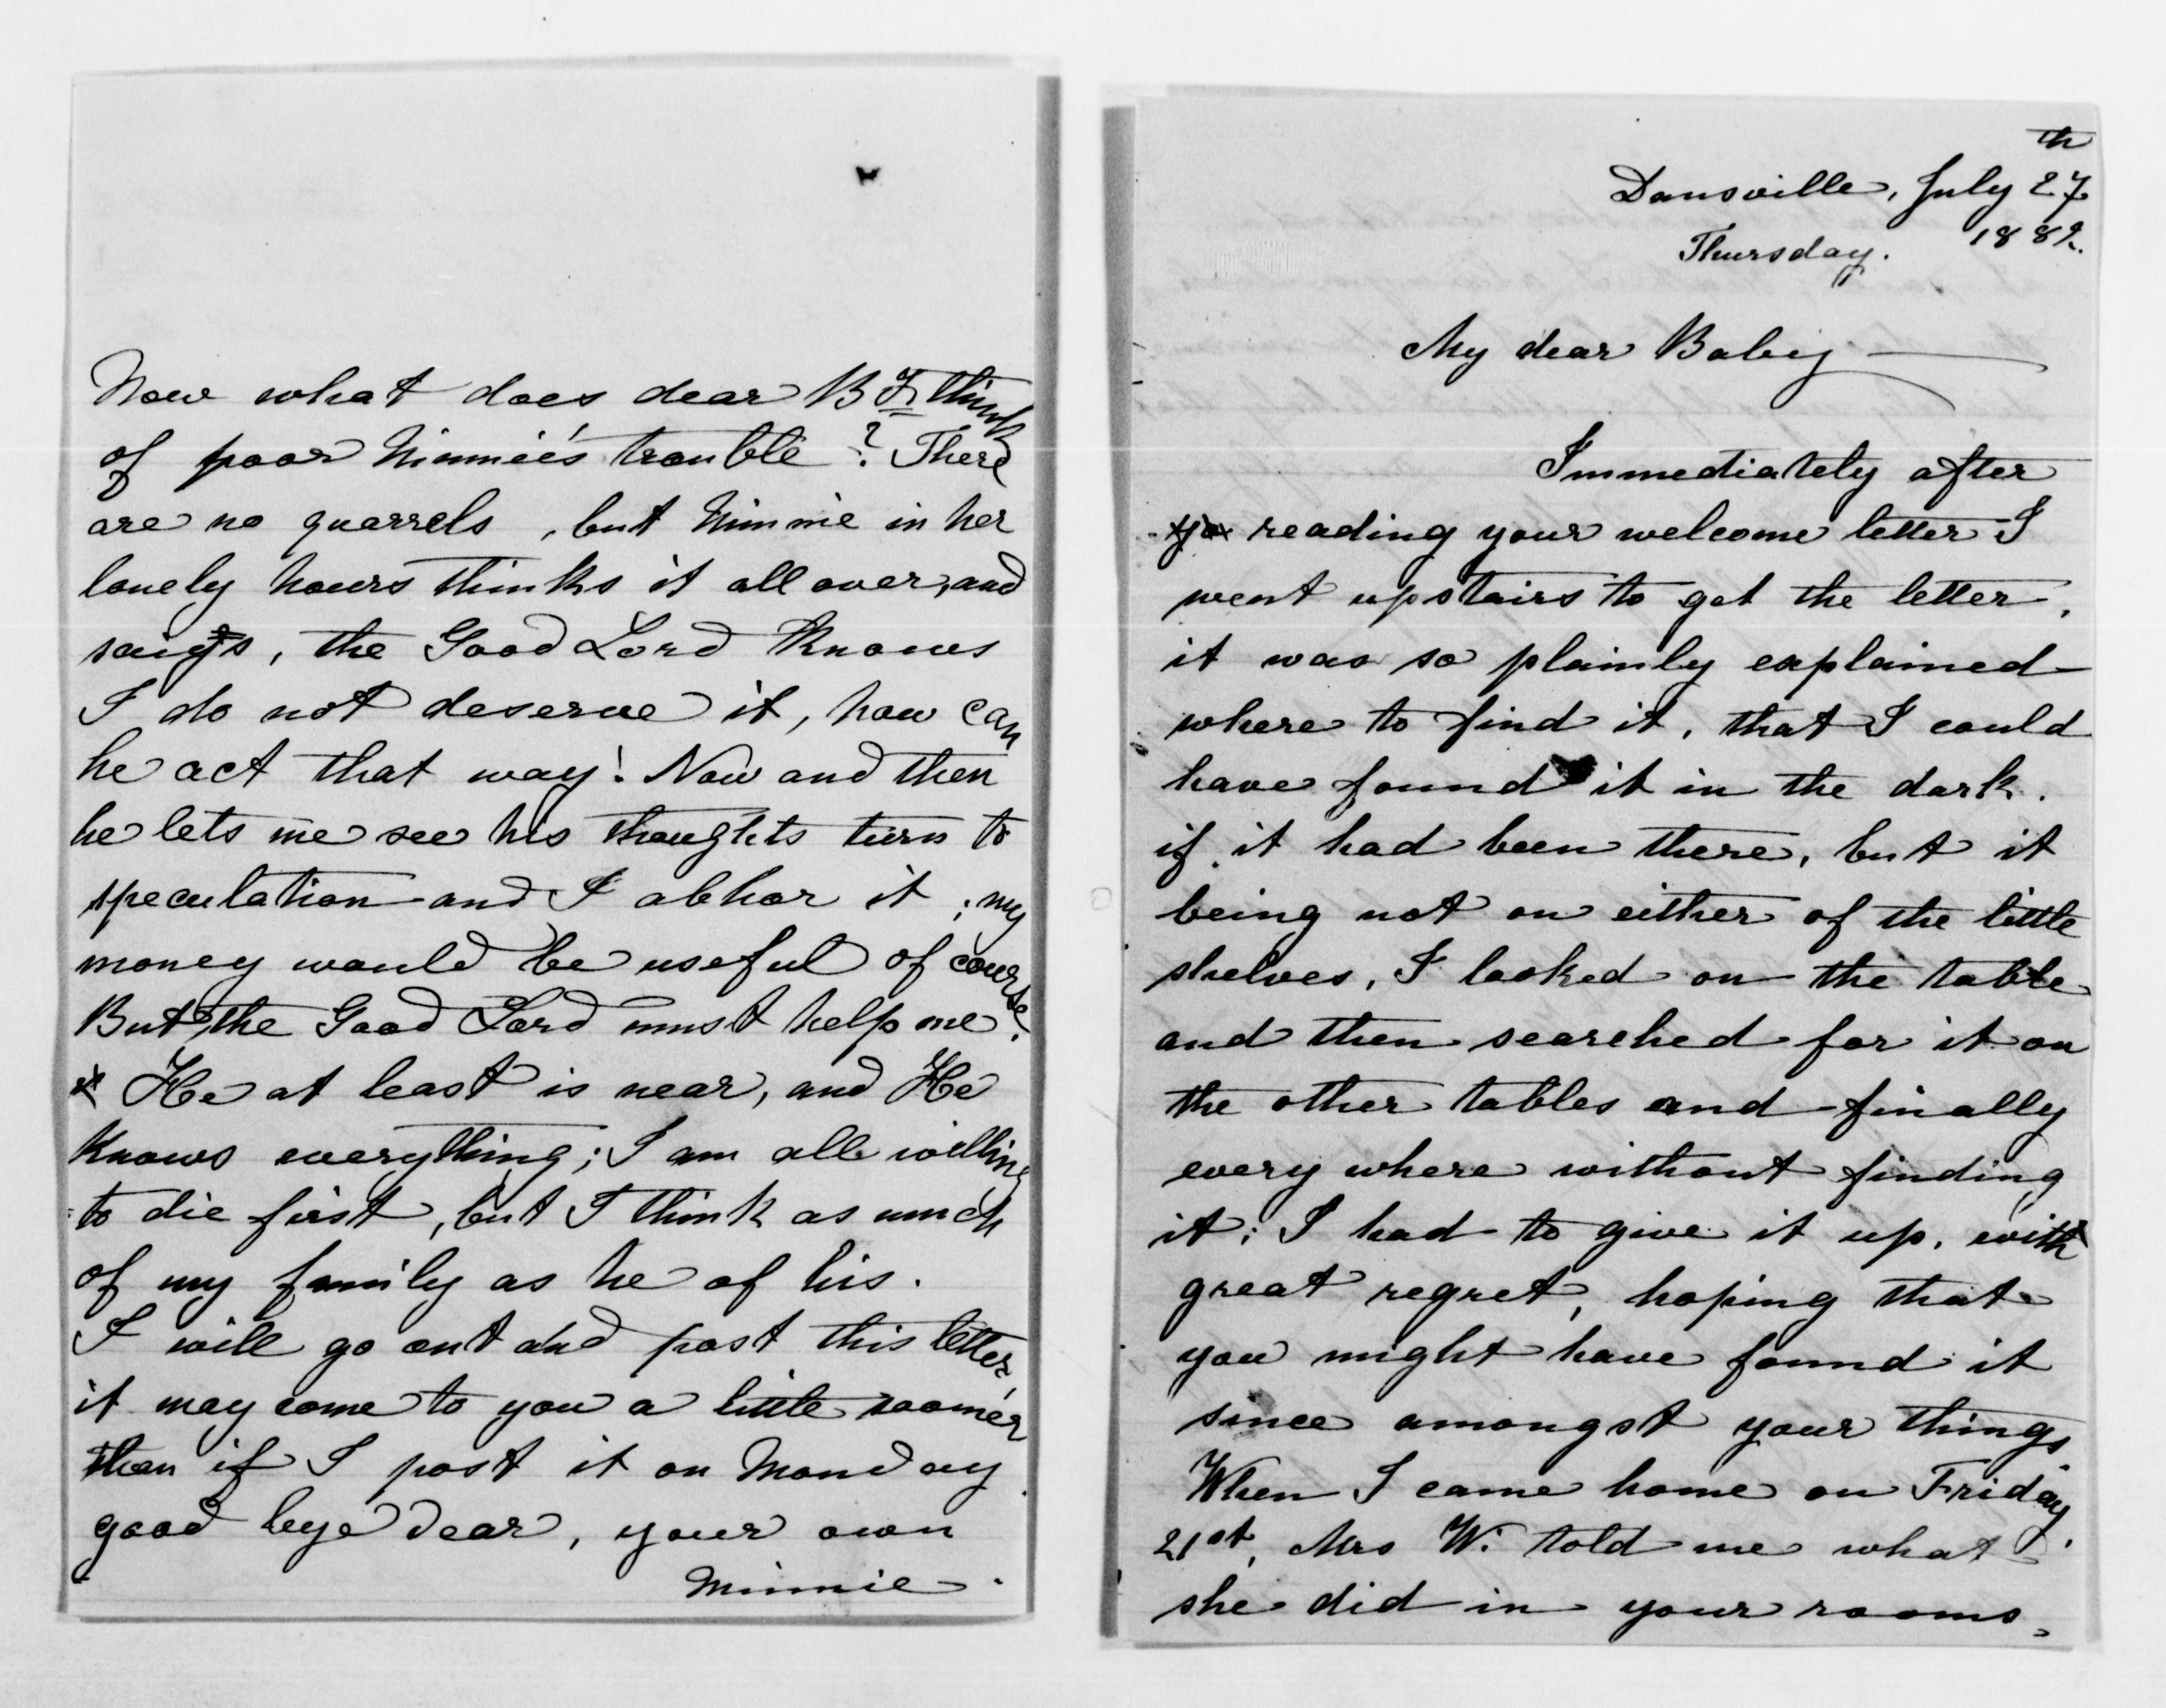 Now what does dear B F. think
of poor Minnie's trouble? There
are no quarrels, but Minnie in her
lonely hours thinks it all over, and
says, the Good Lord knows
I do not deserve it, how can
he act that way! Now and then
he lets me see his thoughts turn to
speculation and I abhor it; my
money would be useful of course.
But, the Good Lord must help me.
He at least is near, and He
knows everything; I am all willing
to die first, but I think as much
of my family as he of his.
I will go out and post this letter,
it may come to you a little sooner
than if I post it on Monday.
good bye dear, your own
Minnie.
Dansville, July 27th
Thursday. 1882.
My dear Baby
Immediately after
reading your welcome letter I
went upstairs to get the letter,
it was so plainly explained
where to find it, that I could
have found it in the dark.
if it had been there, but it
being not on either of the little
shelves, I looked on the table
and then searched for it on
the other tables and finally
every where without finding
it; I had to give it up, with
great regret, hoping that
you might have found it
since amongst your things.
When I came home on Friday.
21st, Mrs W. told me what
she did in your rooms,